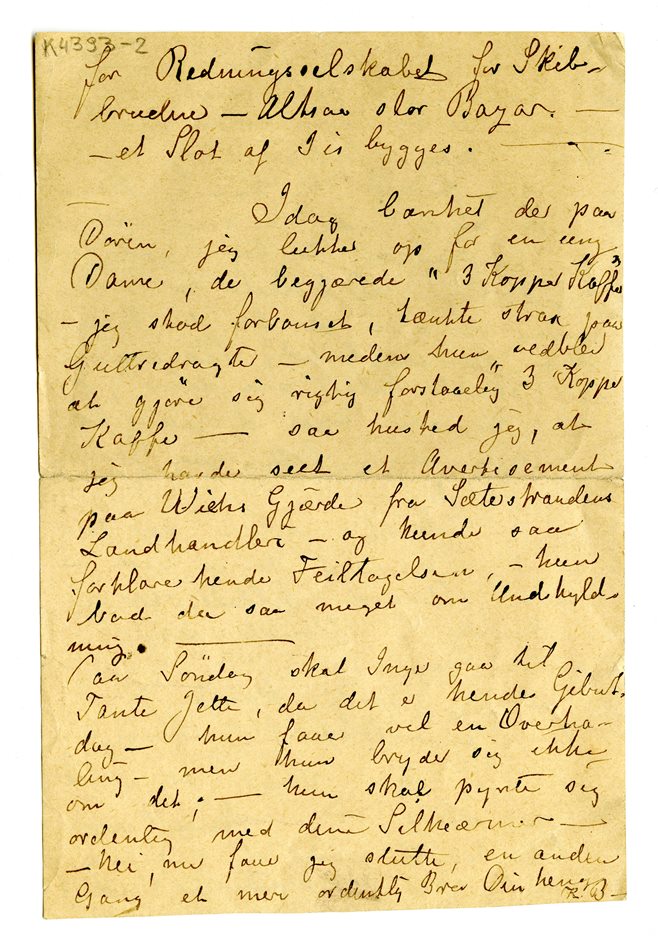 K4393-2
for Redningsselskabet for Skib-
brudne – Altsaa stor Bazar. —
– et Slot af Iis bygges. —
— Idag banket det paa
Døren, jeg lukket op for en ung
Dame, de begjærede "3 Kopper Kaffe"
– jeg stod forbauset, tænkte strax paa
– meden hun vedblev
at gjøre sig rigtig forstaaelig "3 Kopper
Kaffe — saa husked jeg, at
jeg havde seet et Avertisement
paa Wiehs Gjærde fra Sætestrandens
Landhandleri – og kunde saa
forklare hende Feiltagelsen, – hun
bad da saa meget om Undskyld-
ning. —
Paa Söndag skal Inga gaa til
Tante Jette, da det e hendes Gebuts-
dag – hun faar vel en Overha-
ling – men hun bryde sig ikke
om det; — hun skal pynte sig
ordentlig med dine Silkeærmer —
– Nei, nu faar jeg slutte, en anden
Gang et mer ordentlig Brev Din heng
K. B –